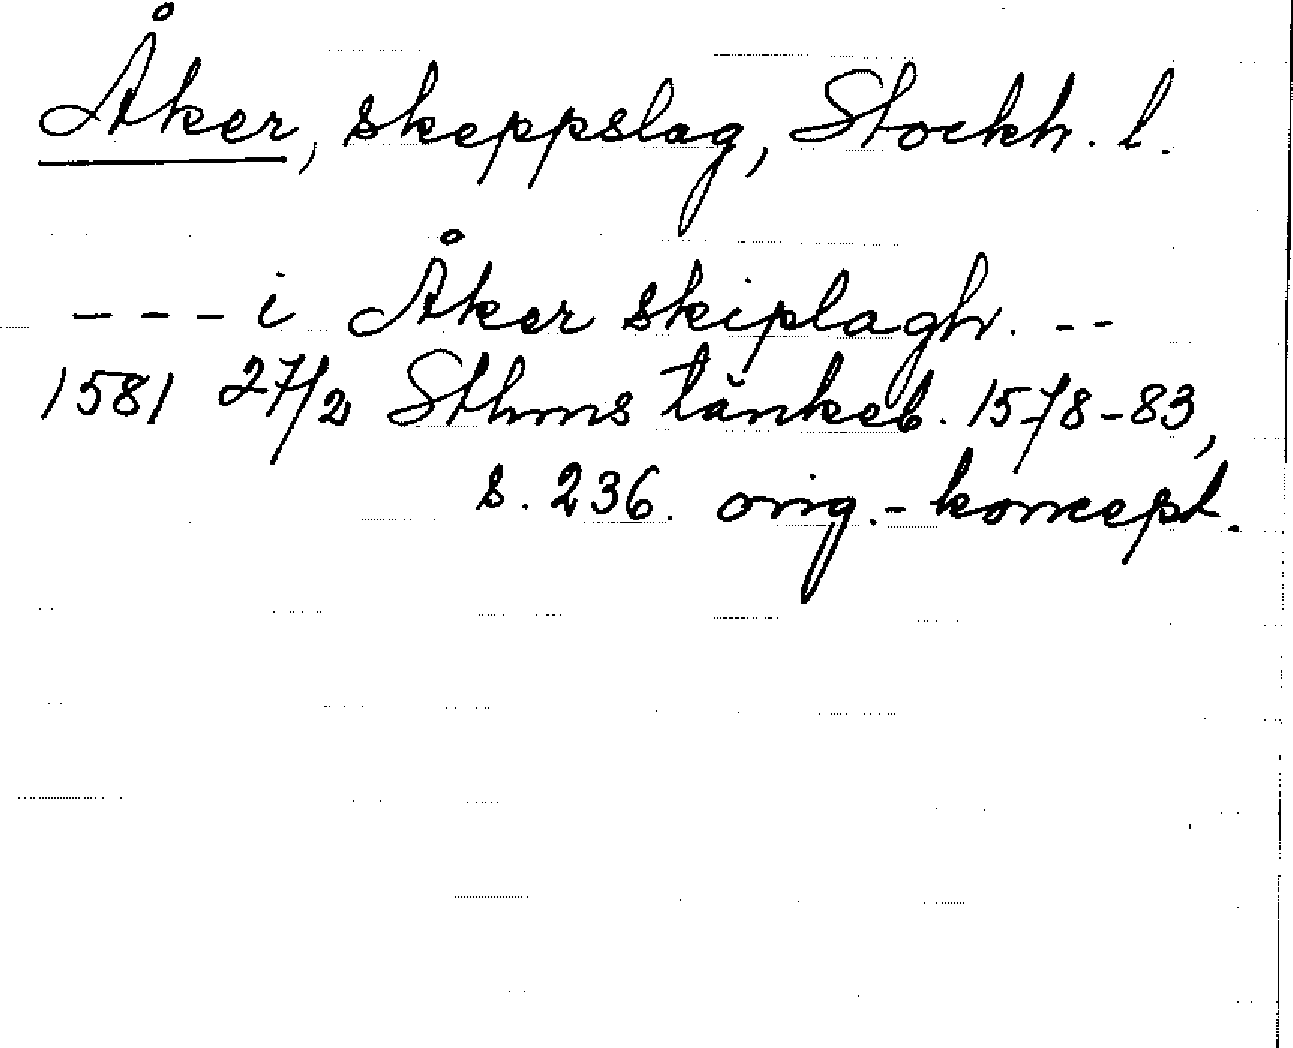 Åker, skeppslag, Stockh. l.
- - - i Åker skiplagh. - -
1581 27/2 Sthms tänkeb. 1578-83,
s. 236. orig.- koncept.